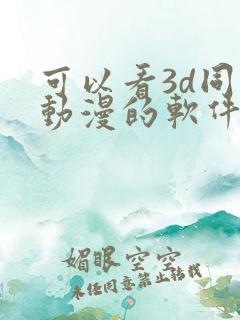 可以看3d同
動漫的軟件
媚眼空空
未经同意禁止转载